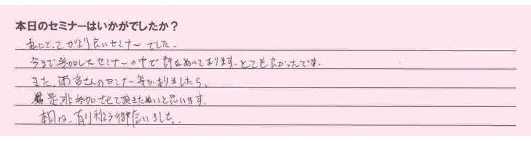 本日のセミナーはいかがでしたか？
私にとってかなり良いセミナーでした。
今まで参加したセミナーの中で群をぬいております。とても良かったです。
また、雨宮さんのセミナー等がありましたら、
是非参加させて頂きたいと思います。
本日は、有り難う御座いました。